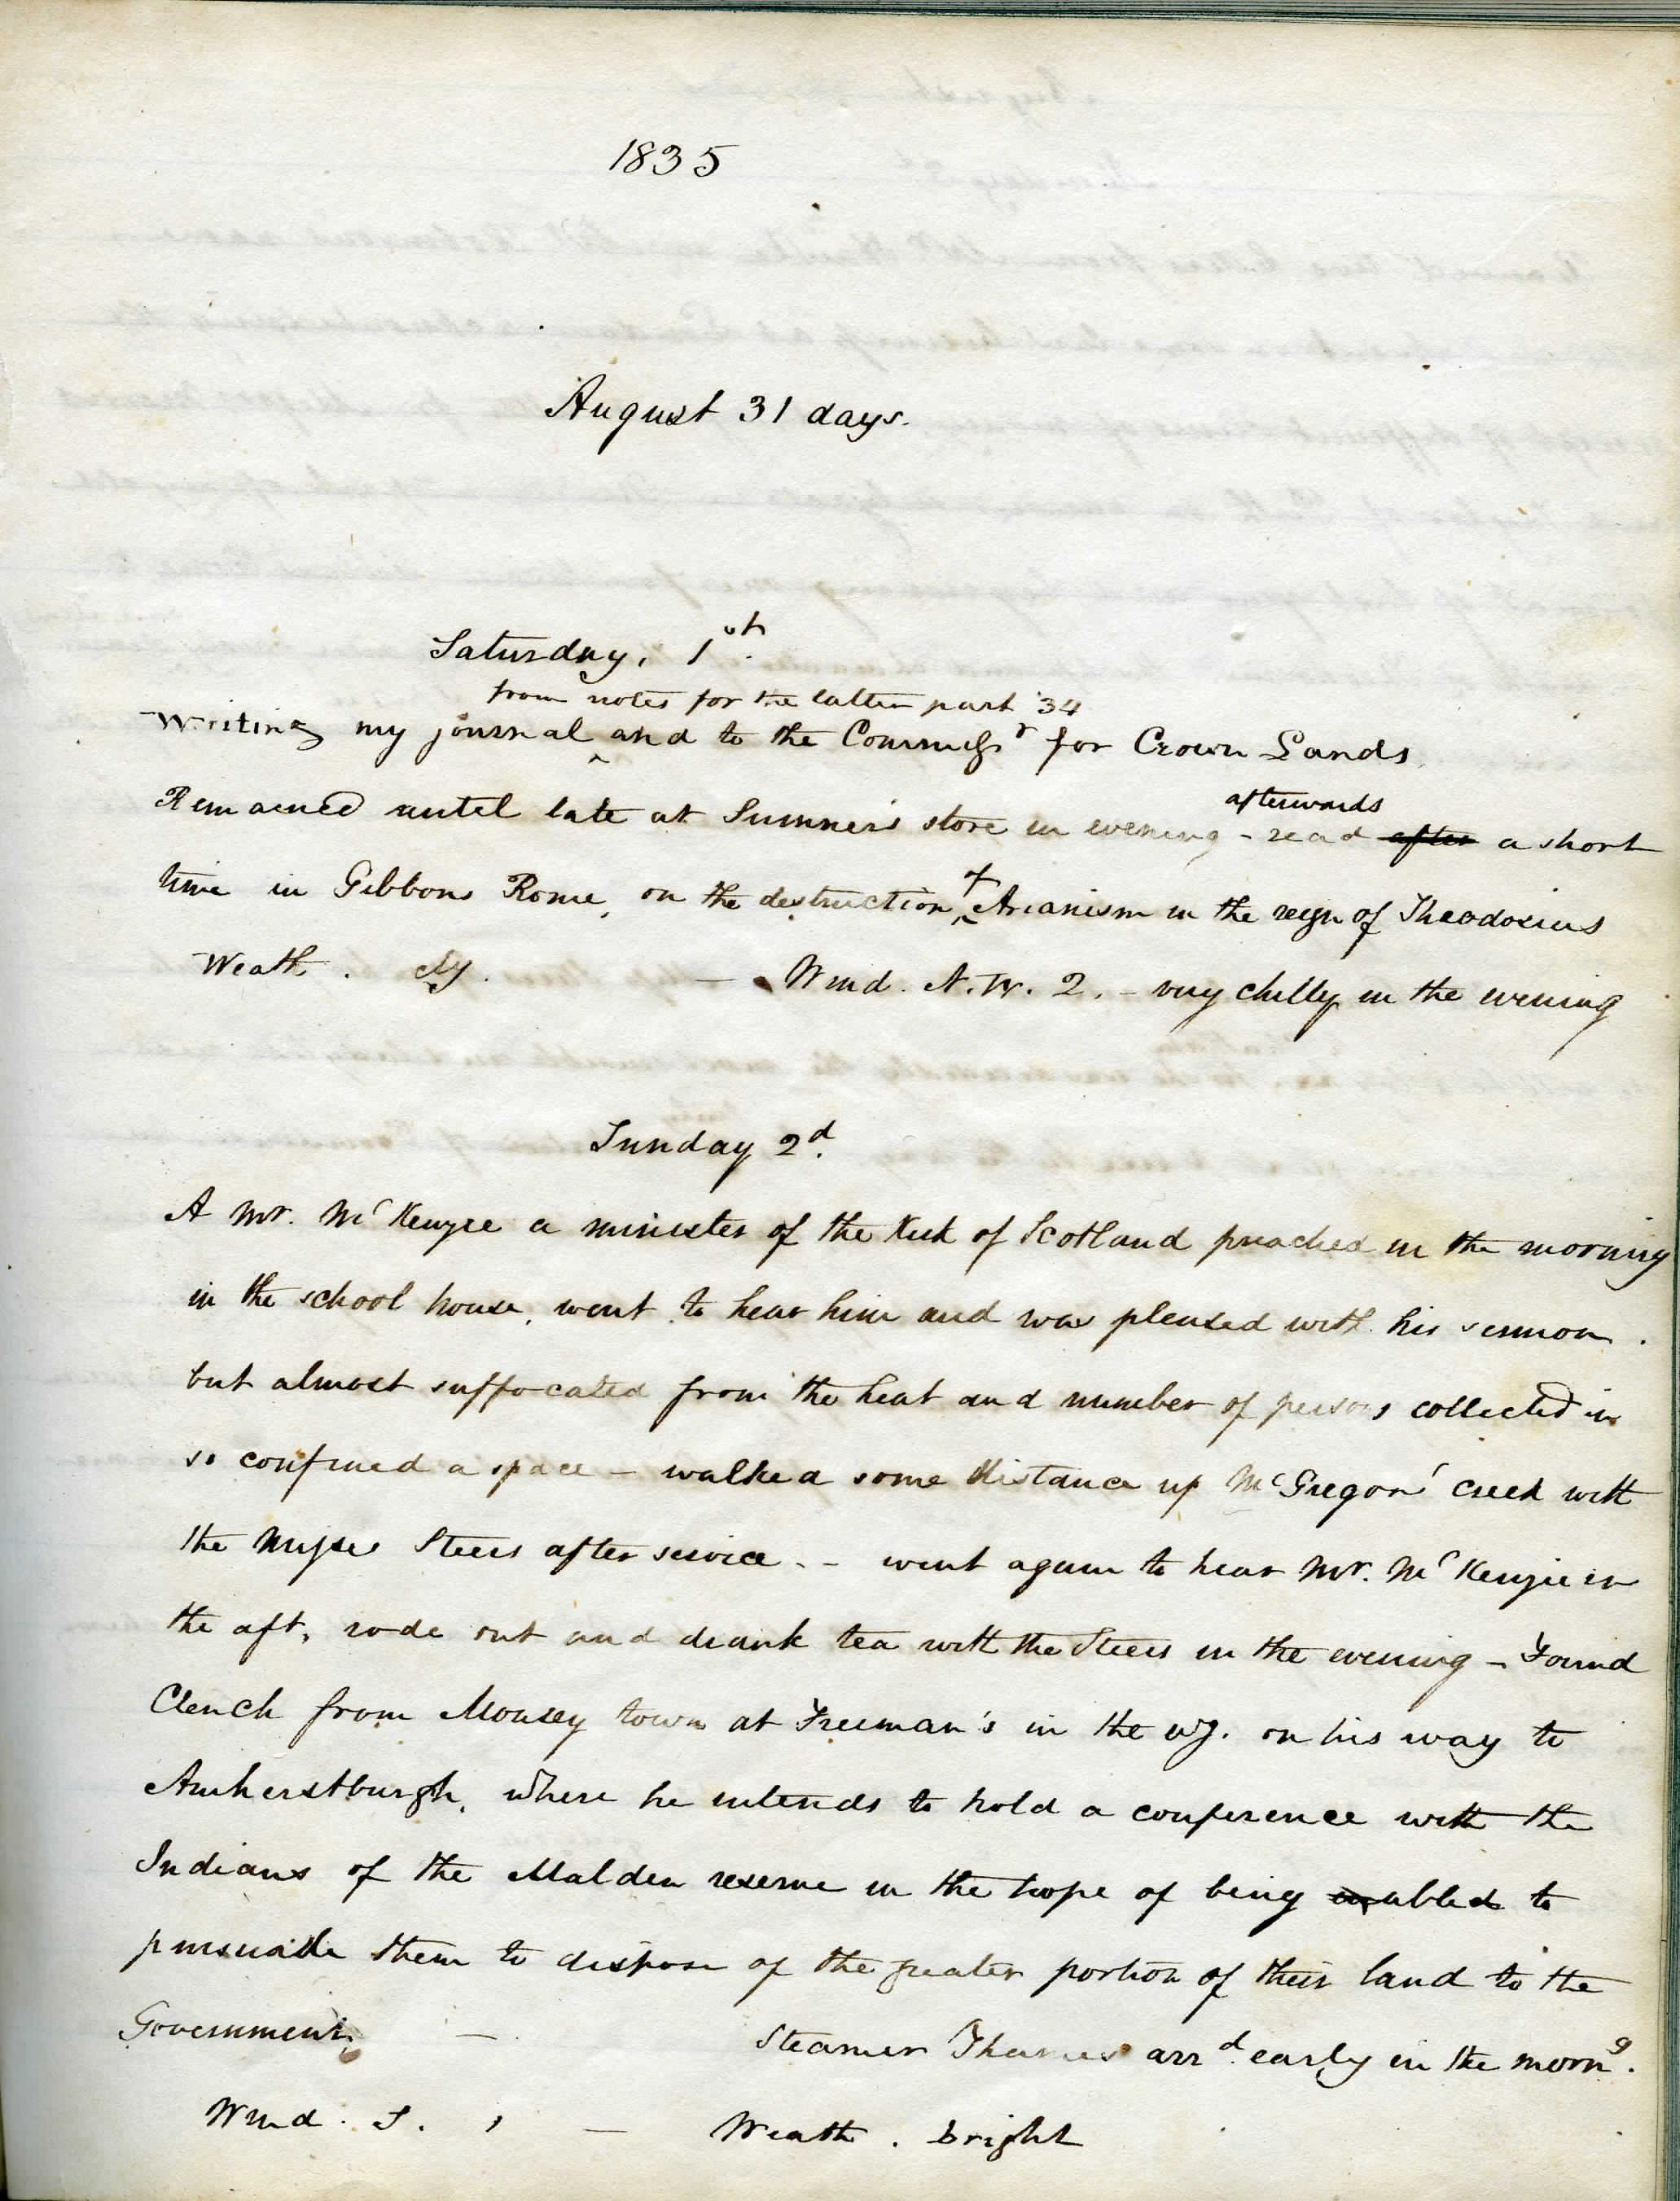 1835
August 31 days.
Saturday, 1st.
from notes for the latter part '34
Writing my journal ^ and to the Commissr for Crown Lands
afterwards
Remained until late at Sumner's store in evening - read ~~after~~ a short
of
time in Gibbons Rome, on the destruction ^ Arianism in the reign of Theodosius
Weath. cly. — Wind. N.W. 2. - very chilly in the evening
Sunday 2d.
A Mr. McKenzie a minister of the Kirk of Scotland preached in the morning
in the school house, went to hear him and was pleased with his sermon.
but almost suffocated from the heat and number of persons collected in
so confined a space - walked some distance up McGregor's Creek with
the Misses Steers after service. - went again to hear Mr. McKenzie in
the aft, rode out and drank tea with the Steers in the evening - Found
Clench from Monsey town at Freeman's in the evg. on his way to
Amherstburgh, where he intends to hold a conference with the
Indians of the Malden reserve in the hope of being ~~en~~abled to
pursuade them to dispose of the greater portion of their land to the
Government. — Steamer Thames arrd. early in the morng.
Wind. S. 1 — Weath. bright